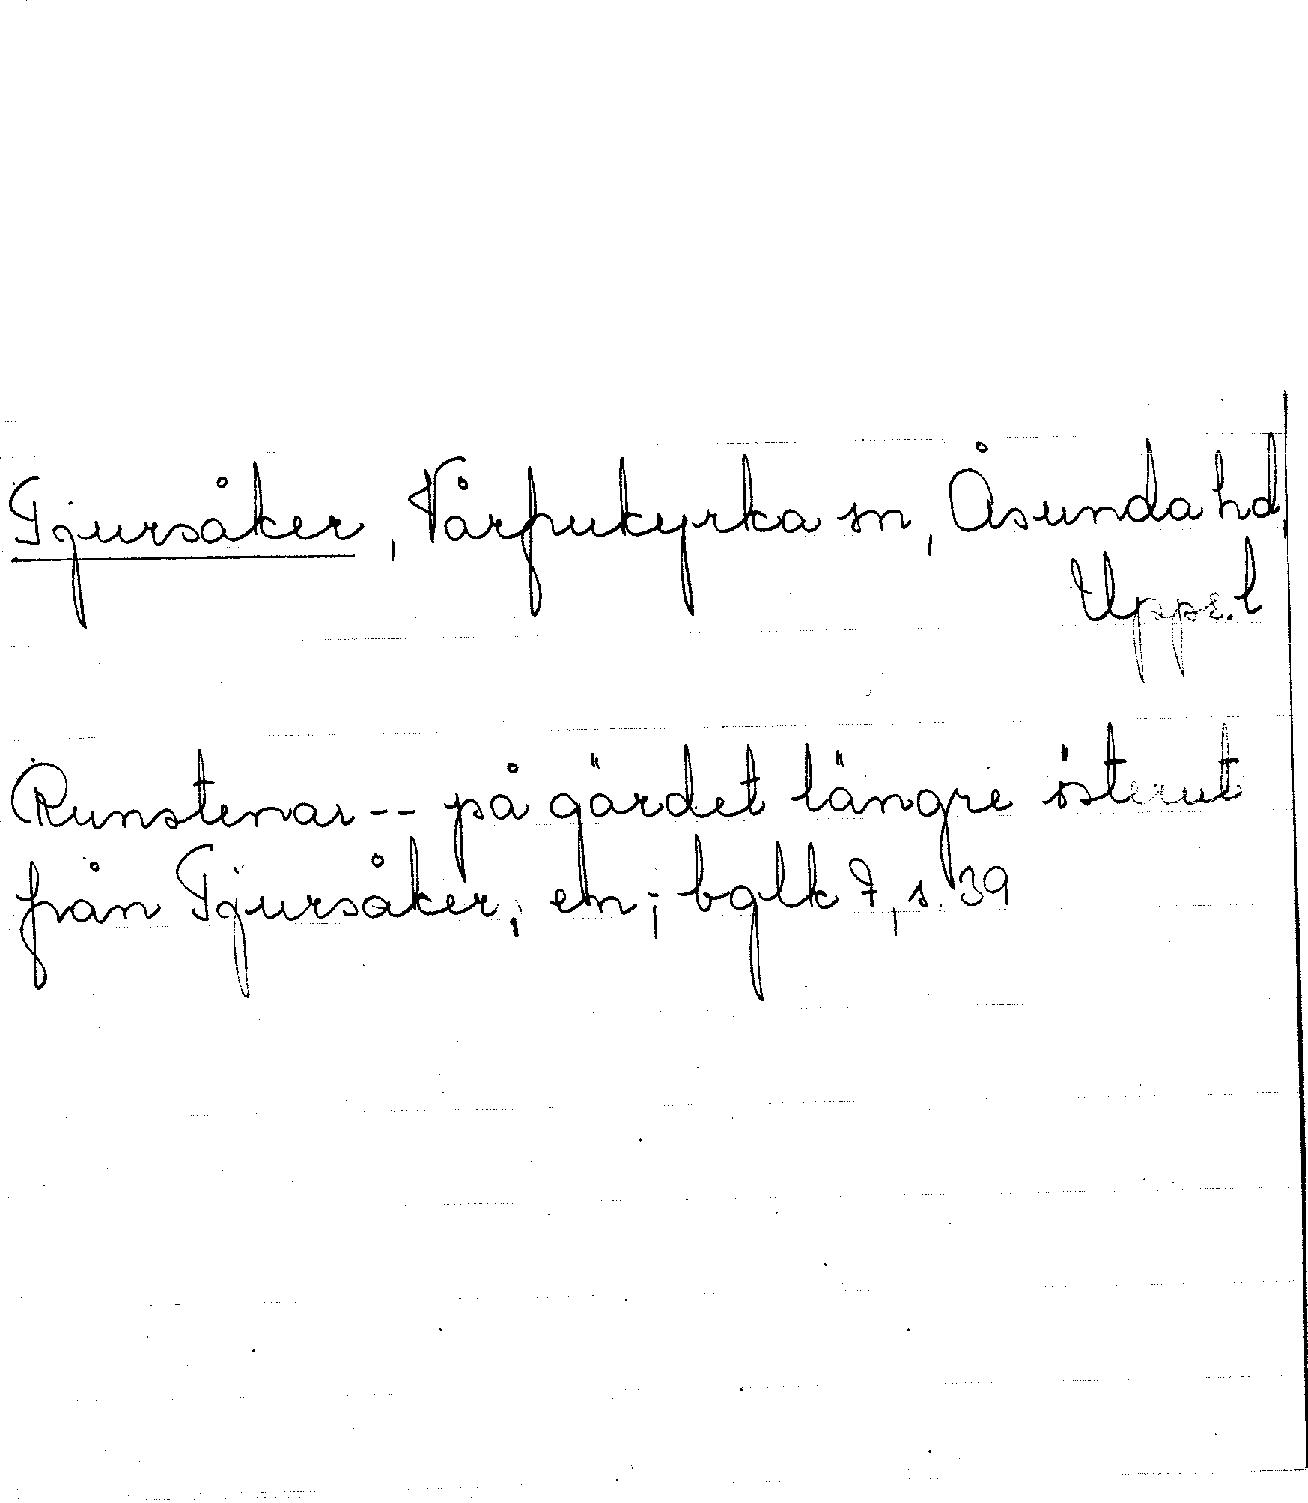 Tjursåker, Vårfrukyrka sn, Åsunda hd,
Upps. l
Runstenar -- på gärdet längre österut
från Tjursåker, en; bglk 7, s. 39